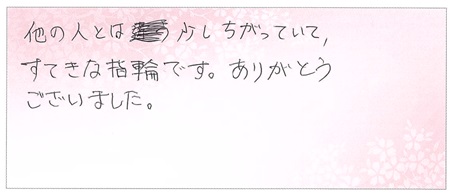 他の人とは少しちがっていて,
すてきな指輪です。ありがとう
ございました。